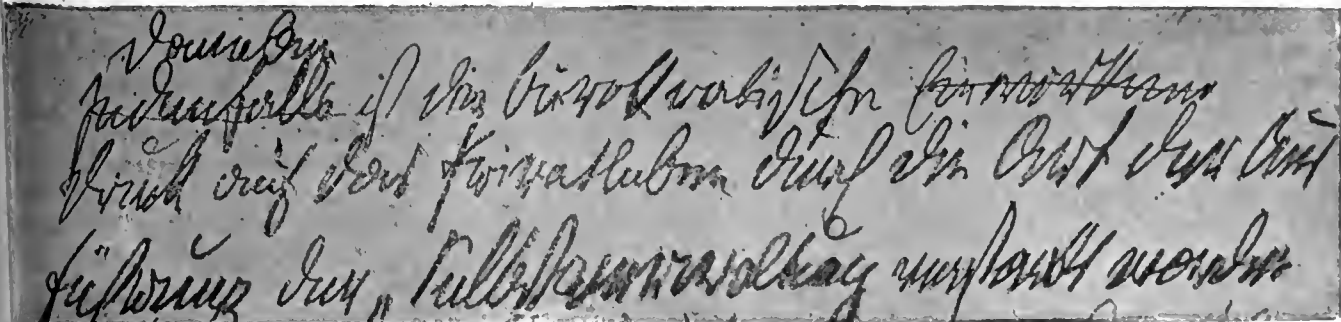 Daneben
Jedenfalls ist der bürokratische Einwirkung
Druck auf das Privatleben durch die Art der Aus
führung der „Selbstverwaltung verstärkt worden